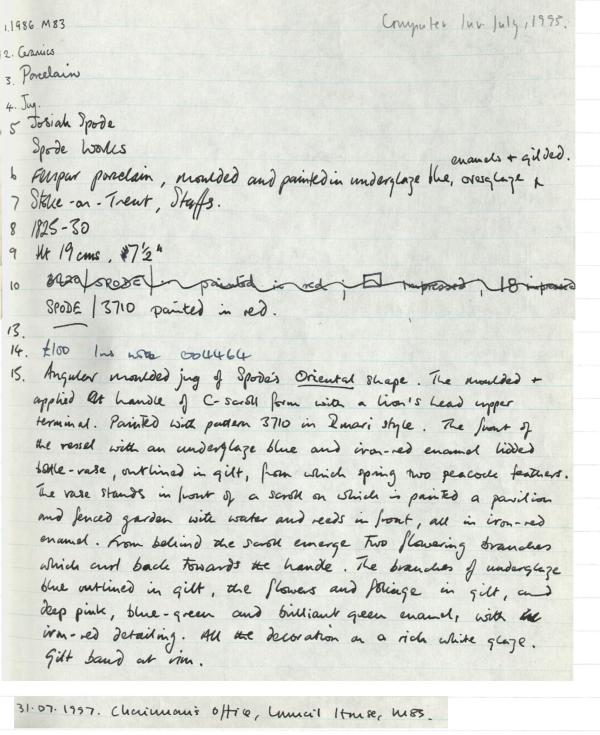 Computer Inv July, 1995.
1. 1986 M83
2. Ceramics
3. Porcelain
4. Jug.
5 Josiah Spode
Spode Works
enamels + gilded.
6 Felspar porcelain, moulded and painted in underglaze blue, overglaze ^
7 Stoke-on-Trent, Staffs.
8 1825-30
9 Ht 19 cms, 7½"
10 SPODE painted in red; impressed, 18 impressed
SPODE / 3710 painted in red.
13.
14. £100 Ins with 004464
15. Angular moulded jug of Spode's Oriental shape. The moulded +
applied handle of C-scroll form with a lion's head upper
terminal. Painted with pattern 3710 in Imari style. The front of
the vessel with an underglaze blue and iron-red enamel lidded
bottle-vase, outlined in gilt, from which spring two peacock feathers.
The vase stands in front of a scroll on which is painted a pavilion
and fenced garden with water and reeds in front, all in iron-red
enamel. From behind the scroll emerge two flowering branches
which curl back towards the handle. The branches of underglaze
blue outlined in gilt, the flowers and foliage in gilt, and
deep pink, blue-green and brilliant green enamel, with
iron-red detailing. All the decoration on a rich white glaze.
Gilt band at rim.
31.07.1997. Chairman's Office, Council House, M83.